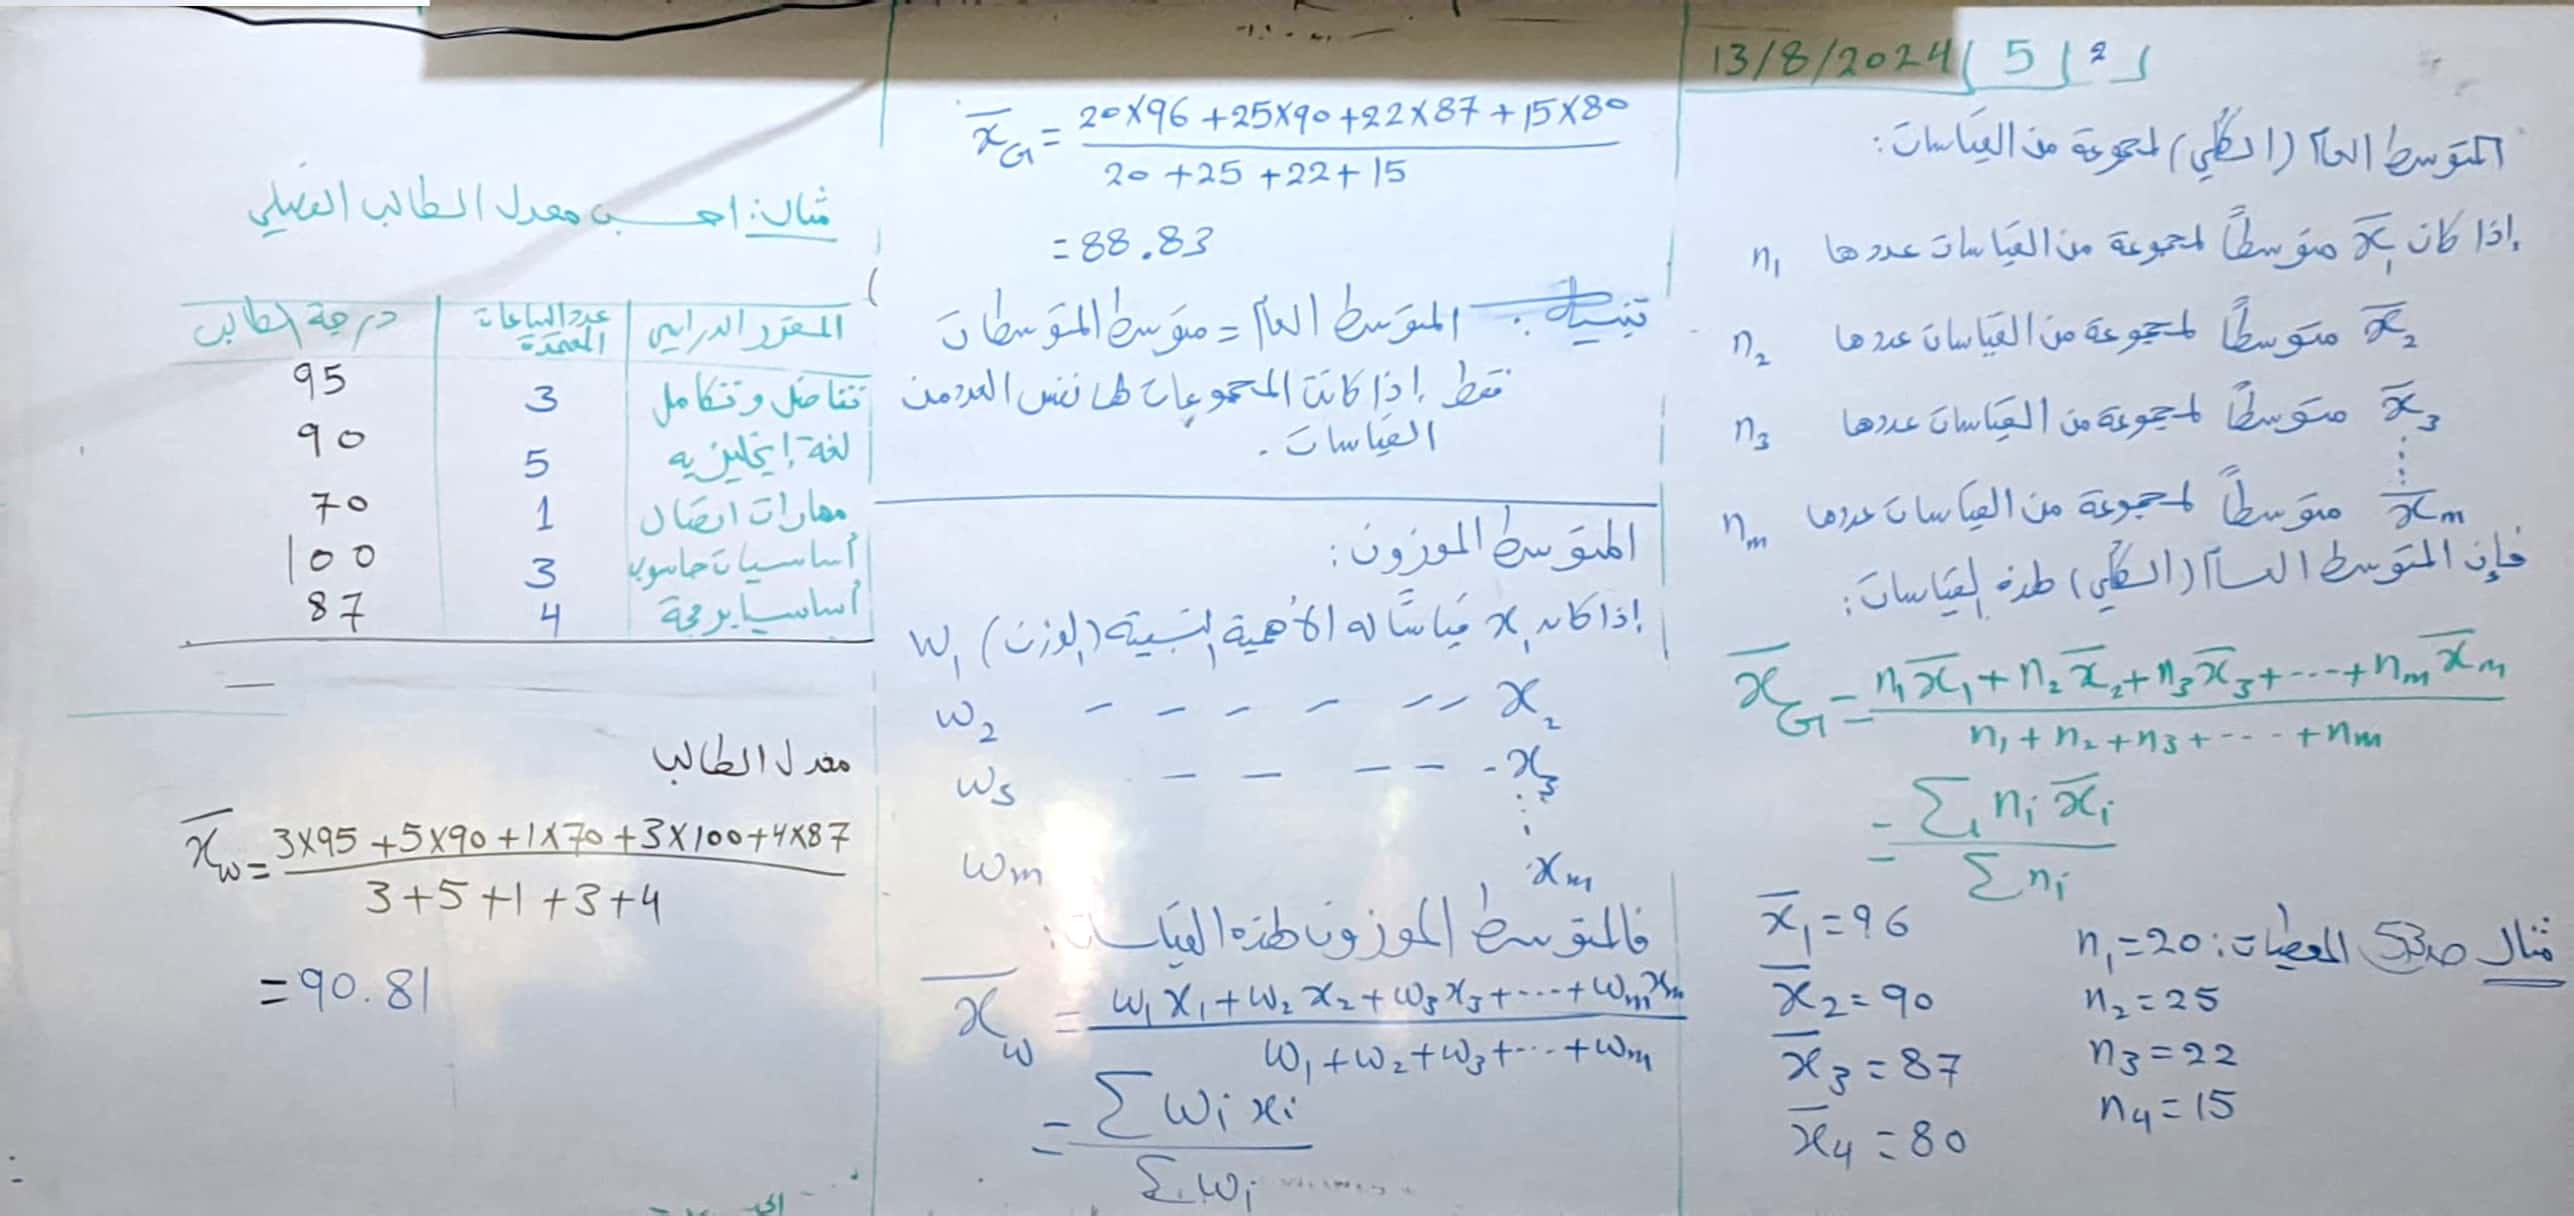 13/8/2024 | 5 | 2
المتوسط العام (الكلي) لمجموعة من القياسات:
إذا كان x̄₁ متوسطاً لمجموعة من القياسات عددها n₁
x̄₂ متوسطاً لمجموعة من القياسات عددها n₂
x̄₃ متوسطاً لمجموعة من القياسات عددها n₃
⋮
x̄ₘ متوسطاً لمجموعة من القياسات عددها nₘ
فإن المتوسط العام (الكلي) لهذه القياسات:
x̄_G = (n₁x̄₁ + n₂x̄₂ + n₃x̄₃ + ---- + nₘx̄ₘ) / (n₁ + n₂ + n₃ + ---- + nₘ)
= Σ nᵢ x̄ᵢ / Σ nᵢ
مثال صـ53 المعطيات: n₁=20 x̄₁=96
n₂=25 x̄₂=90
n₃=22 x̄₃=87
n₄=15 x̄₄=80
x̄_G = (20×96 + 25×90 + 22×87 + 15×80) / (20 + 25 + 22 + 15)
= 88.83
تنبيه: المتوسط العام = متوسط المتوسطات
فقط إذا كانت المجموعات لها نفس العدد من
القياسات.
المتوسط الموزون:
إذا كان x₁ قياساً له الأهمية النسبية (الوزن) w₁
x₂ -- - - - - - w₂
x₃ - - - - - w₃
⋮
xₘ wₘ
فالمتوسط الموزون لهذه القياسات:
x̄_w = (w₁x₁ + w₂x₂ + w₃x₃ + ---- + wₘxₘ) / (w₁ + w₂ + w₃ + --- + wₘ)
= Σ wᵢ xᵢ / Σ wᵢ
مثال: احسب معدل الطالب الفصلي
المقرر الدراسي | عدد الساعات المعتمدة | درجة الطالب
تفاضل وتكامل | 3 | 95
لغة إنجليزيه | 5 | 90
مهارات اتصال | 1 | 70
أساسيات حاسوب | 3 | 100
أساسيا برمجة | 4 | 87
معدل الطالب
x̄_w = (3×95 + 5×90 + 1×70 + 3×100 + 4×87) / (3+5+1+3+4)
= 90.81